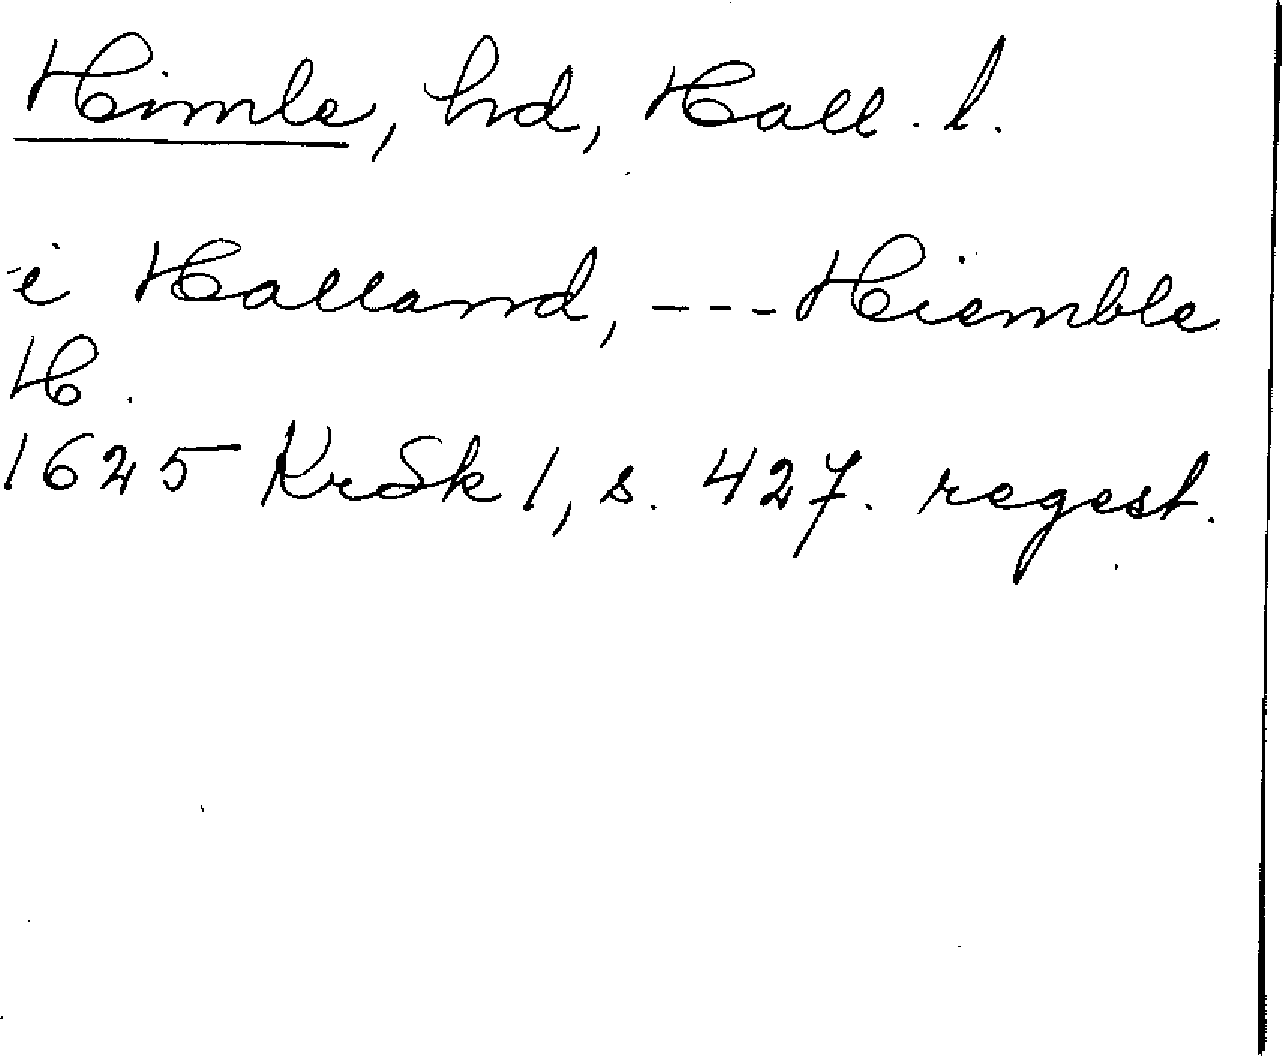 Himle, hd, Hall. l.
i Halland, --- Hiemble
H.
1625 KrSk 1, s. 427. regest.